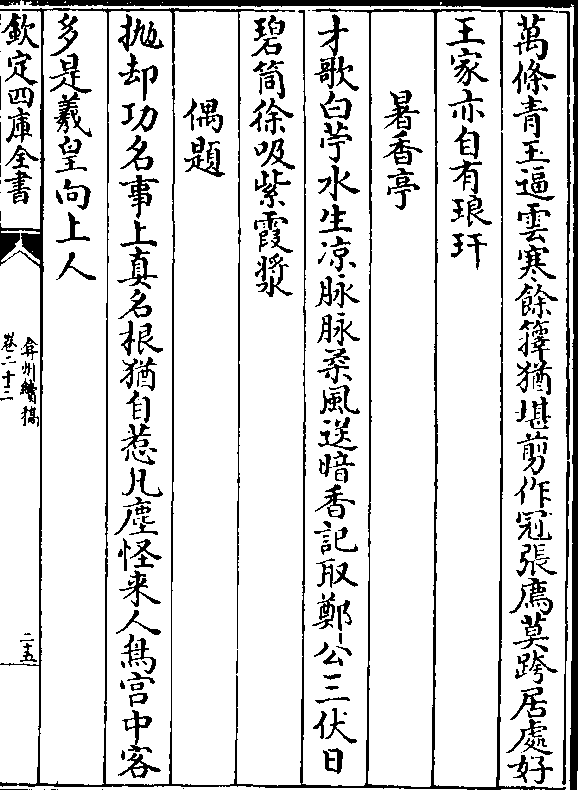 萬條青玉逼雲寒餘籜猶堪剪作冠張廌莫跨居處好
王家亦自有琅玕
暑香亭
才歌白苧水生凉脉脉柔風送暗香記取鄭公三伏日
碧筒徐吸紫霞漿
偶題
抛却功名事上真名根猶自惹凡塵怪来人爲宫中客
多是羲皇向上人
欽定四庫全書
弇州續稿
卷二十三
二五